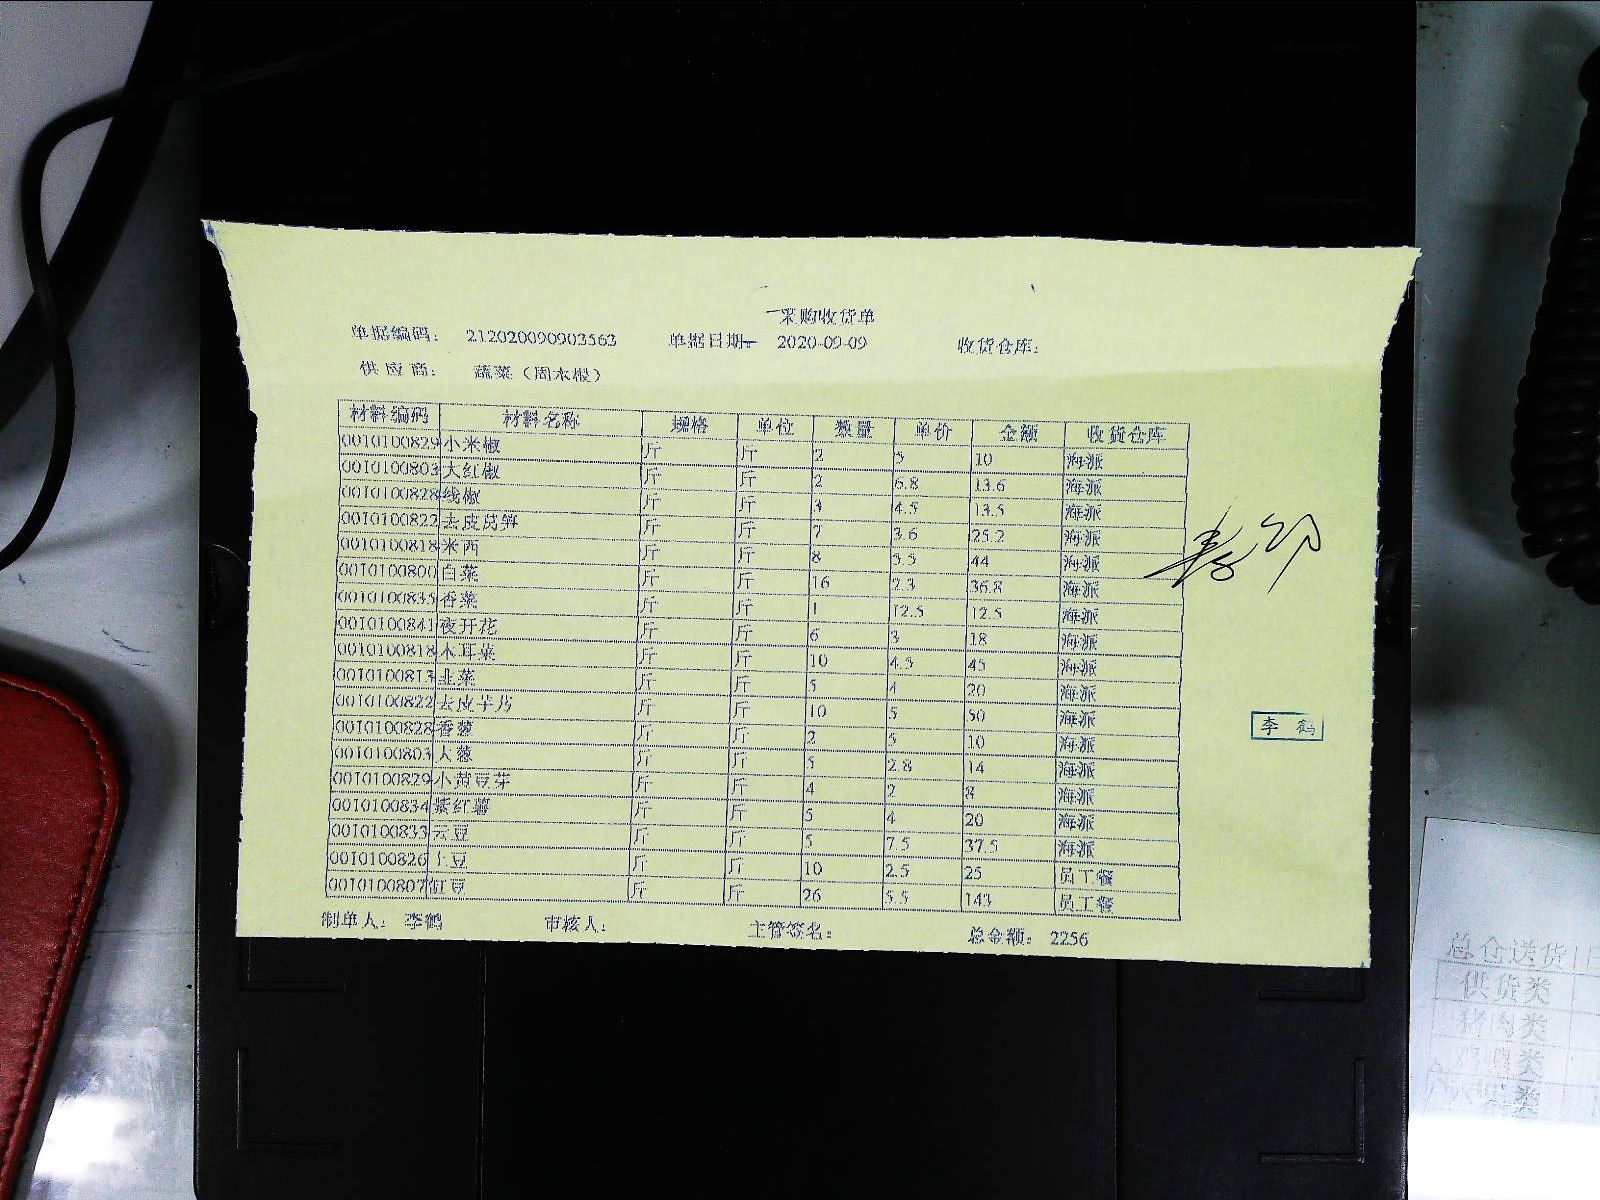 采购收货单
单据编码： 212020090903563 单据日期： 2020-09-09 收货仓库：
供应商： 蔬菜（周木根）
材料编码 材料名称 规格 单位 数量 单价 金额 收货仓库
0010100829 小米椒 斤 斤 2 5 10 海派
0010100803 大红椒 斤 斤 2 6.8 13.6 海派
0010100828 线椒 斤 斤 3 4.5 13.5 海派
0010100822 去皮莴笋 斤 斤 7 3.6 25.2 海派
0010100818 米西 斤 斤 8 5.5 44 海派
0010100800 白菜 斤 斤 16 2.3 36.8 海派
0010100835 香菜 斤 斤 1 12.5 12.5 海派
0010100841 夜开花 斤 斤 6 3 18 海派
0010100818 木耳菜 斤 斤 10 4.5 45 海派
0010100813 韭菜 斤 斤 5 4 20 海派
0010100822 去皮芋艿 斤 斤 10 5 50 海派
0010100828 香葱 斤 斤 2 5 10 海派
0010100803 大葱 斤 斤 5 2.8 14 海派
0010100829 小黄豆芽 斤 斤 4 2 8 海派
0010100834 紫红薯 斤 斤 5 4 20 海派
0010100833 云豆 斤 斤 5 7.5 37.5 海派
0010100826 土豆 斤 斤 10 2.5 25 员工餐
0010100807 豇豆 斤 斤 26 5.5 143 员工餐
李 鹤
制单人： 李鹤 审核人： 主管签名： 总金额： 2256
总仓送货
供货类
猪肉类